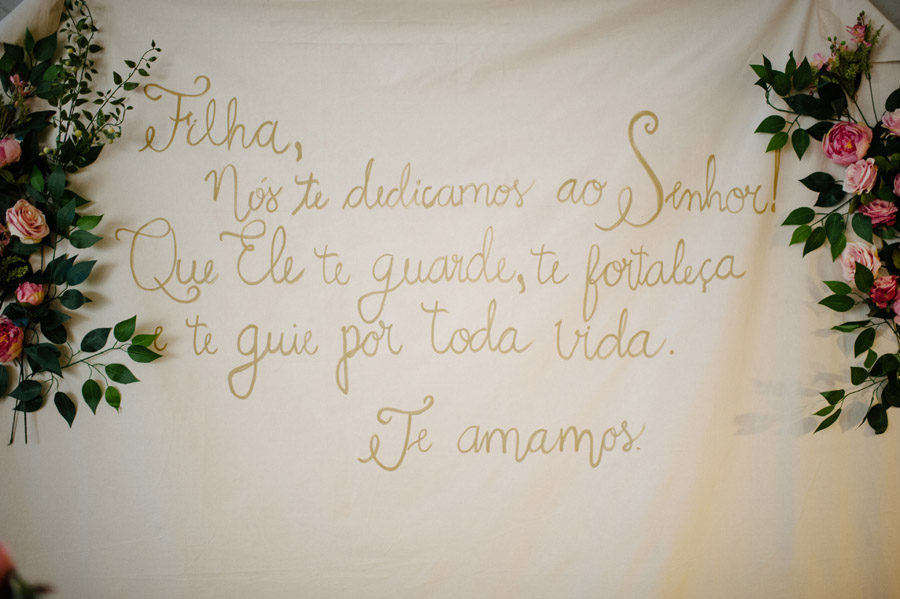 Filha,
Nós te dedicamos ao Senhor!
Que Ele te guarde, te fortaleça
e te guie por toda vida.
Te amamos.